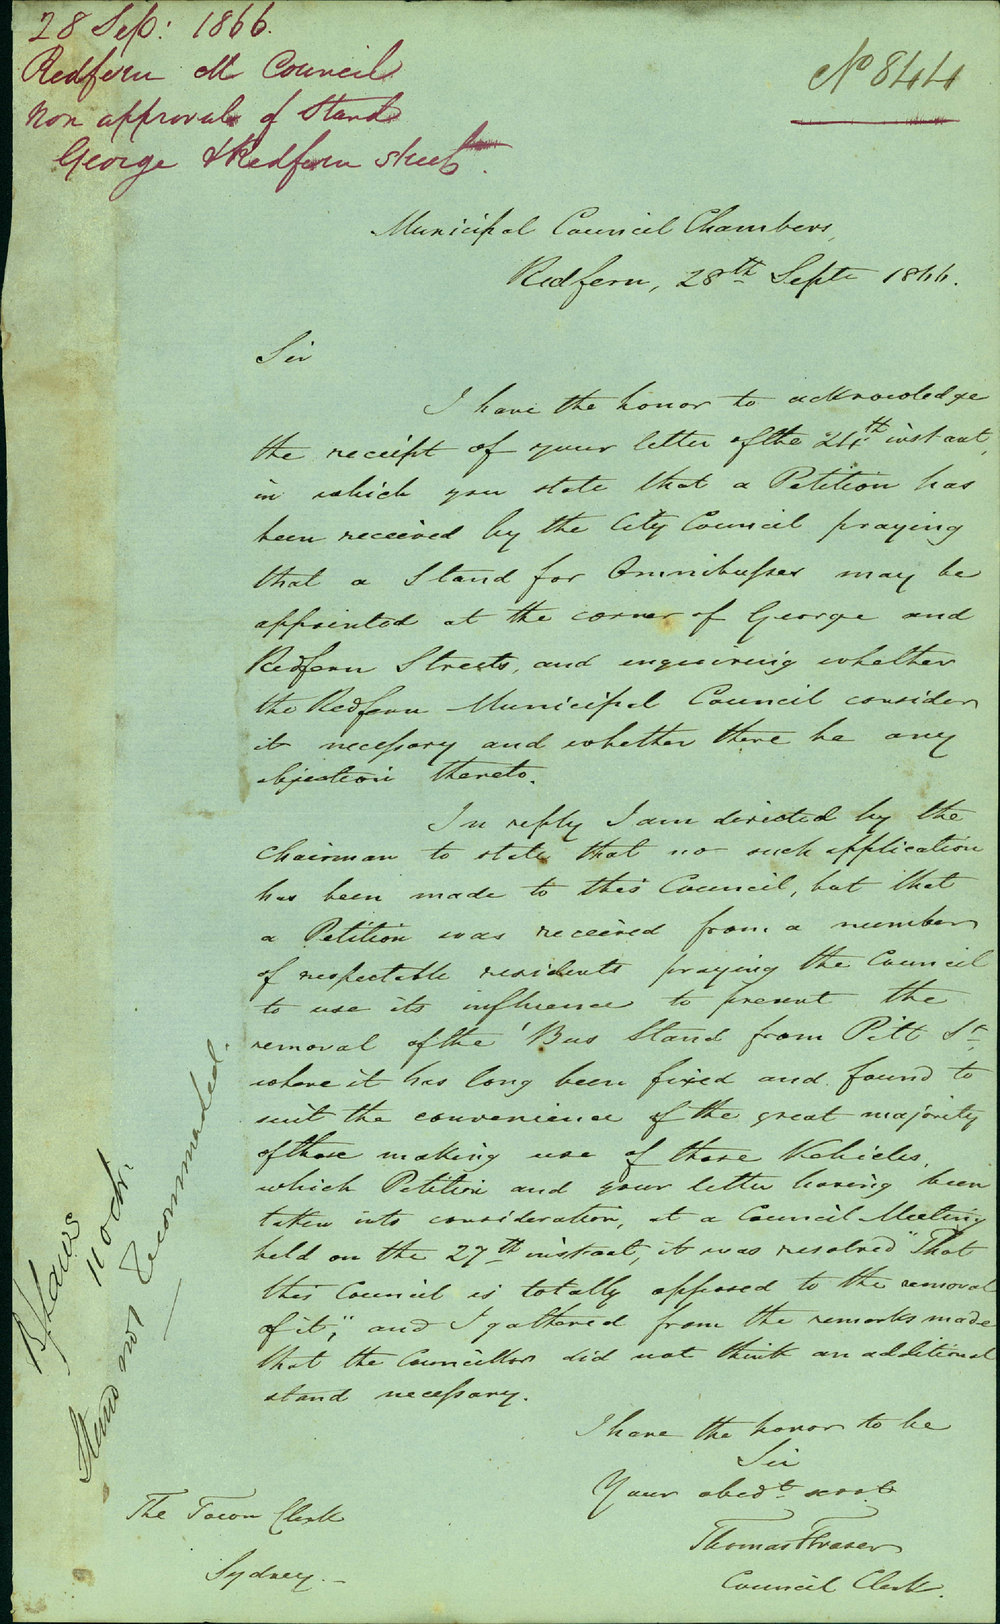 28 Sep: 1866.
Redfern M Council
Non approval of Stand
George & Redfern street
No 844
Municipal Council Chambers,
Redfern, 28th Septr 1866.
Sir
I have the honor to acknowledge
the receipt of your letter of the 24th instant,
in which you state that a Petition has
been received by the City Council praying
that a Stand for Omnibusses may be
appointed at the corner of George and
Redfern Streets, and enquiring whether
the Redfern Municipal Council consider
it necessary and whether there be any
objection thereto.
In reply I am directed by the
Chairman to state that no such application
has been made to this Council, but that
a Petition was received from a number
of respectable residents praying the Council
to use its influence to prevent the
removal of the 'Bus Stand from Pitt St
where it has long been fixed and found to
suit the convenience of the great majority
of those making use of those Vehicles,
which Petition and your letter having been
taken into consideration, at a Council Meeting
held on the 27th instant, it was resolved "That
this Council is totally opposed to the removal
of it", and I gathered from the remarks made
that the Councillors did not think an additional
stand necessary.
I have the honor to be
Sir
Your obedt servt
Thomas Fraser
Council Clerk.
The Town Clerk
Sydney.
11 Octr.
Stand not Recommended.